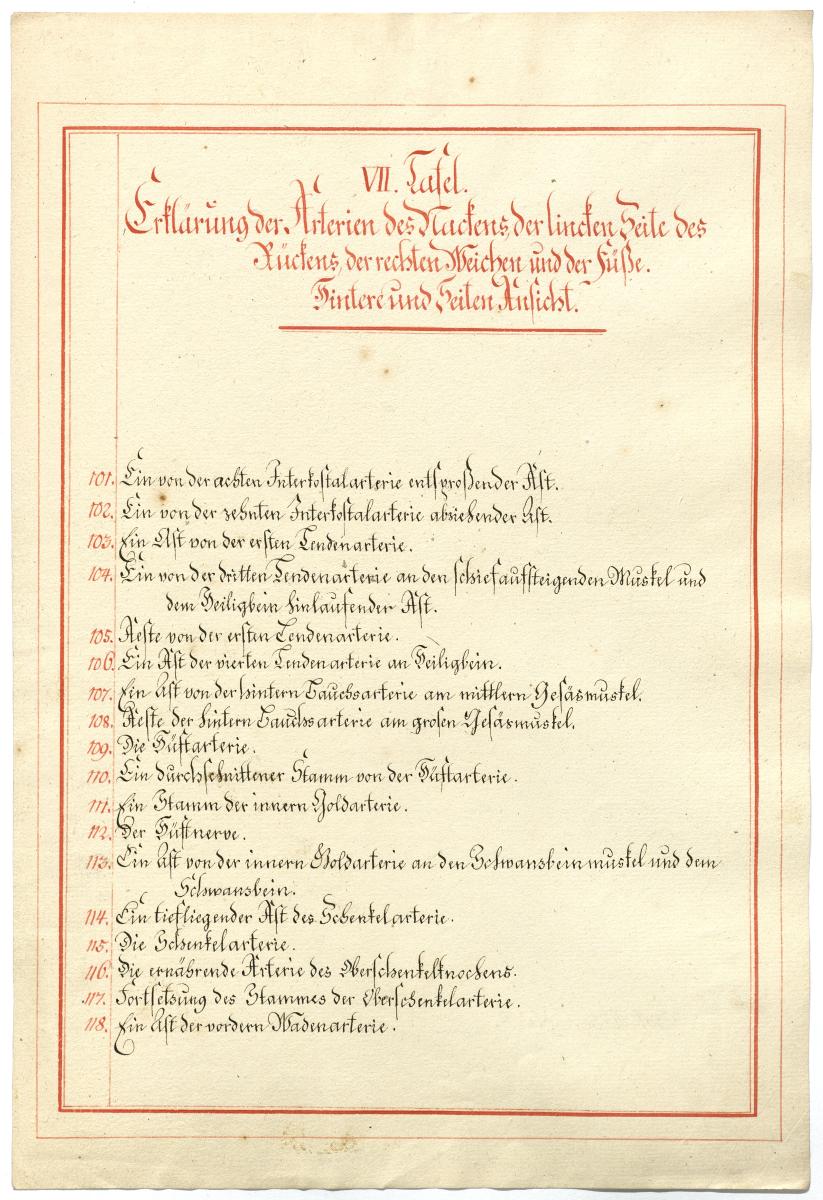 VII. Tafel.
Erklärung der Arterien des Nackens, der lincken Seite des
Rückens, der rechten Weichen und der Füße.
Hintere und Seiten Ansicht.
101. Ein von der achten Interkostalarterie entsproßender Ast.
102. Ein von der zehnten Interkostalarterie abziehender Ast.
103. Ein Ast von der ersten Lendenarterie.
104. Ein von der dritten Lendenarterie an den schiefaufsteigenden Muskel und
dem Heiligbein hinlaufender Ast.
105. Aeste von der ersten Lendenarterie.
106. Ein Ast der vierten Lendenarterie an Heiligbein.
107. Ein Ast von der hintern Bauchsarterie am mittlern Gesäsmuskel.
108. Aeste der hintern Bauchsarterie am grosen Gesäsmuskel.
109. Die Hüftarterie.
110. Ein durchschnittener Stamm von der Hüftarterie.
111. Ein Stamm der innern Goldarterie.
112. Der Hüftnerve.
113. Ein Ast von der innern Goldarterie an den Schwansbeinmuskel und dem
Schwansbein.
114. Ein tiefliegender Ast des Schenkelarterie.
115. Die Schenkelarterie.
116. Die ernährende Arterie des Oberschenkelknochens.
117. Fortsetzung des Stammes der Oberschenkelarterie.
118. Ein Ast der vordern Wadenarterie.